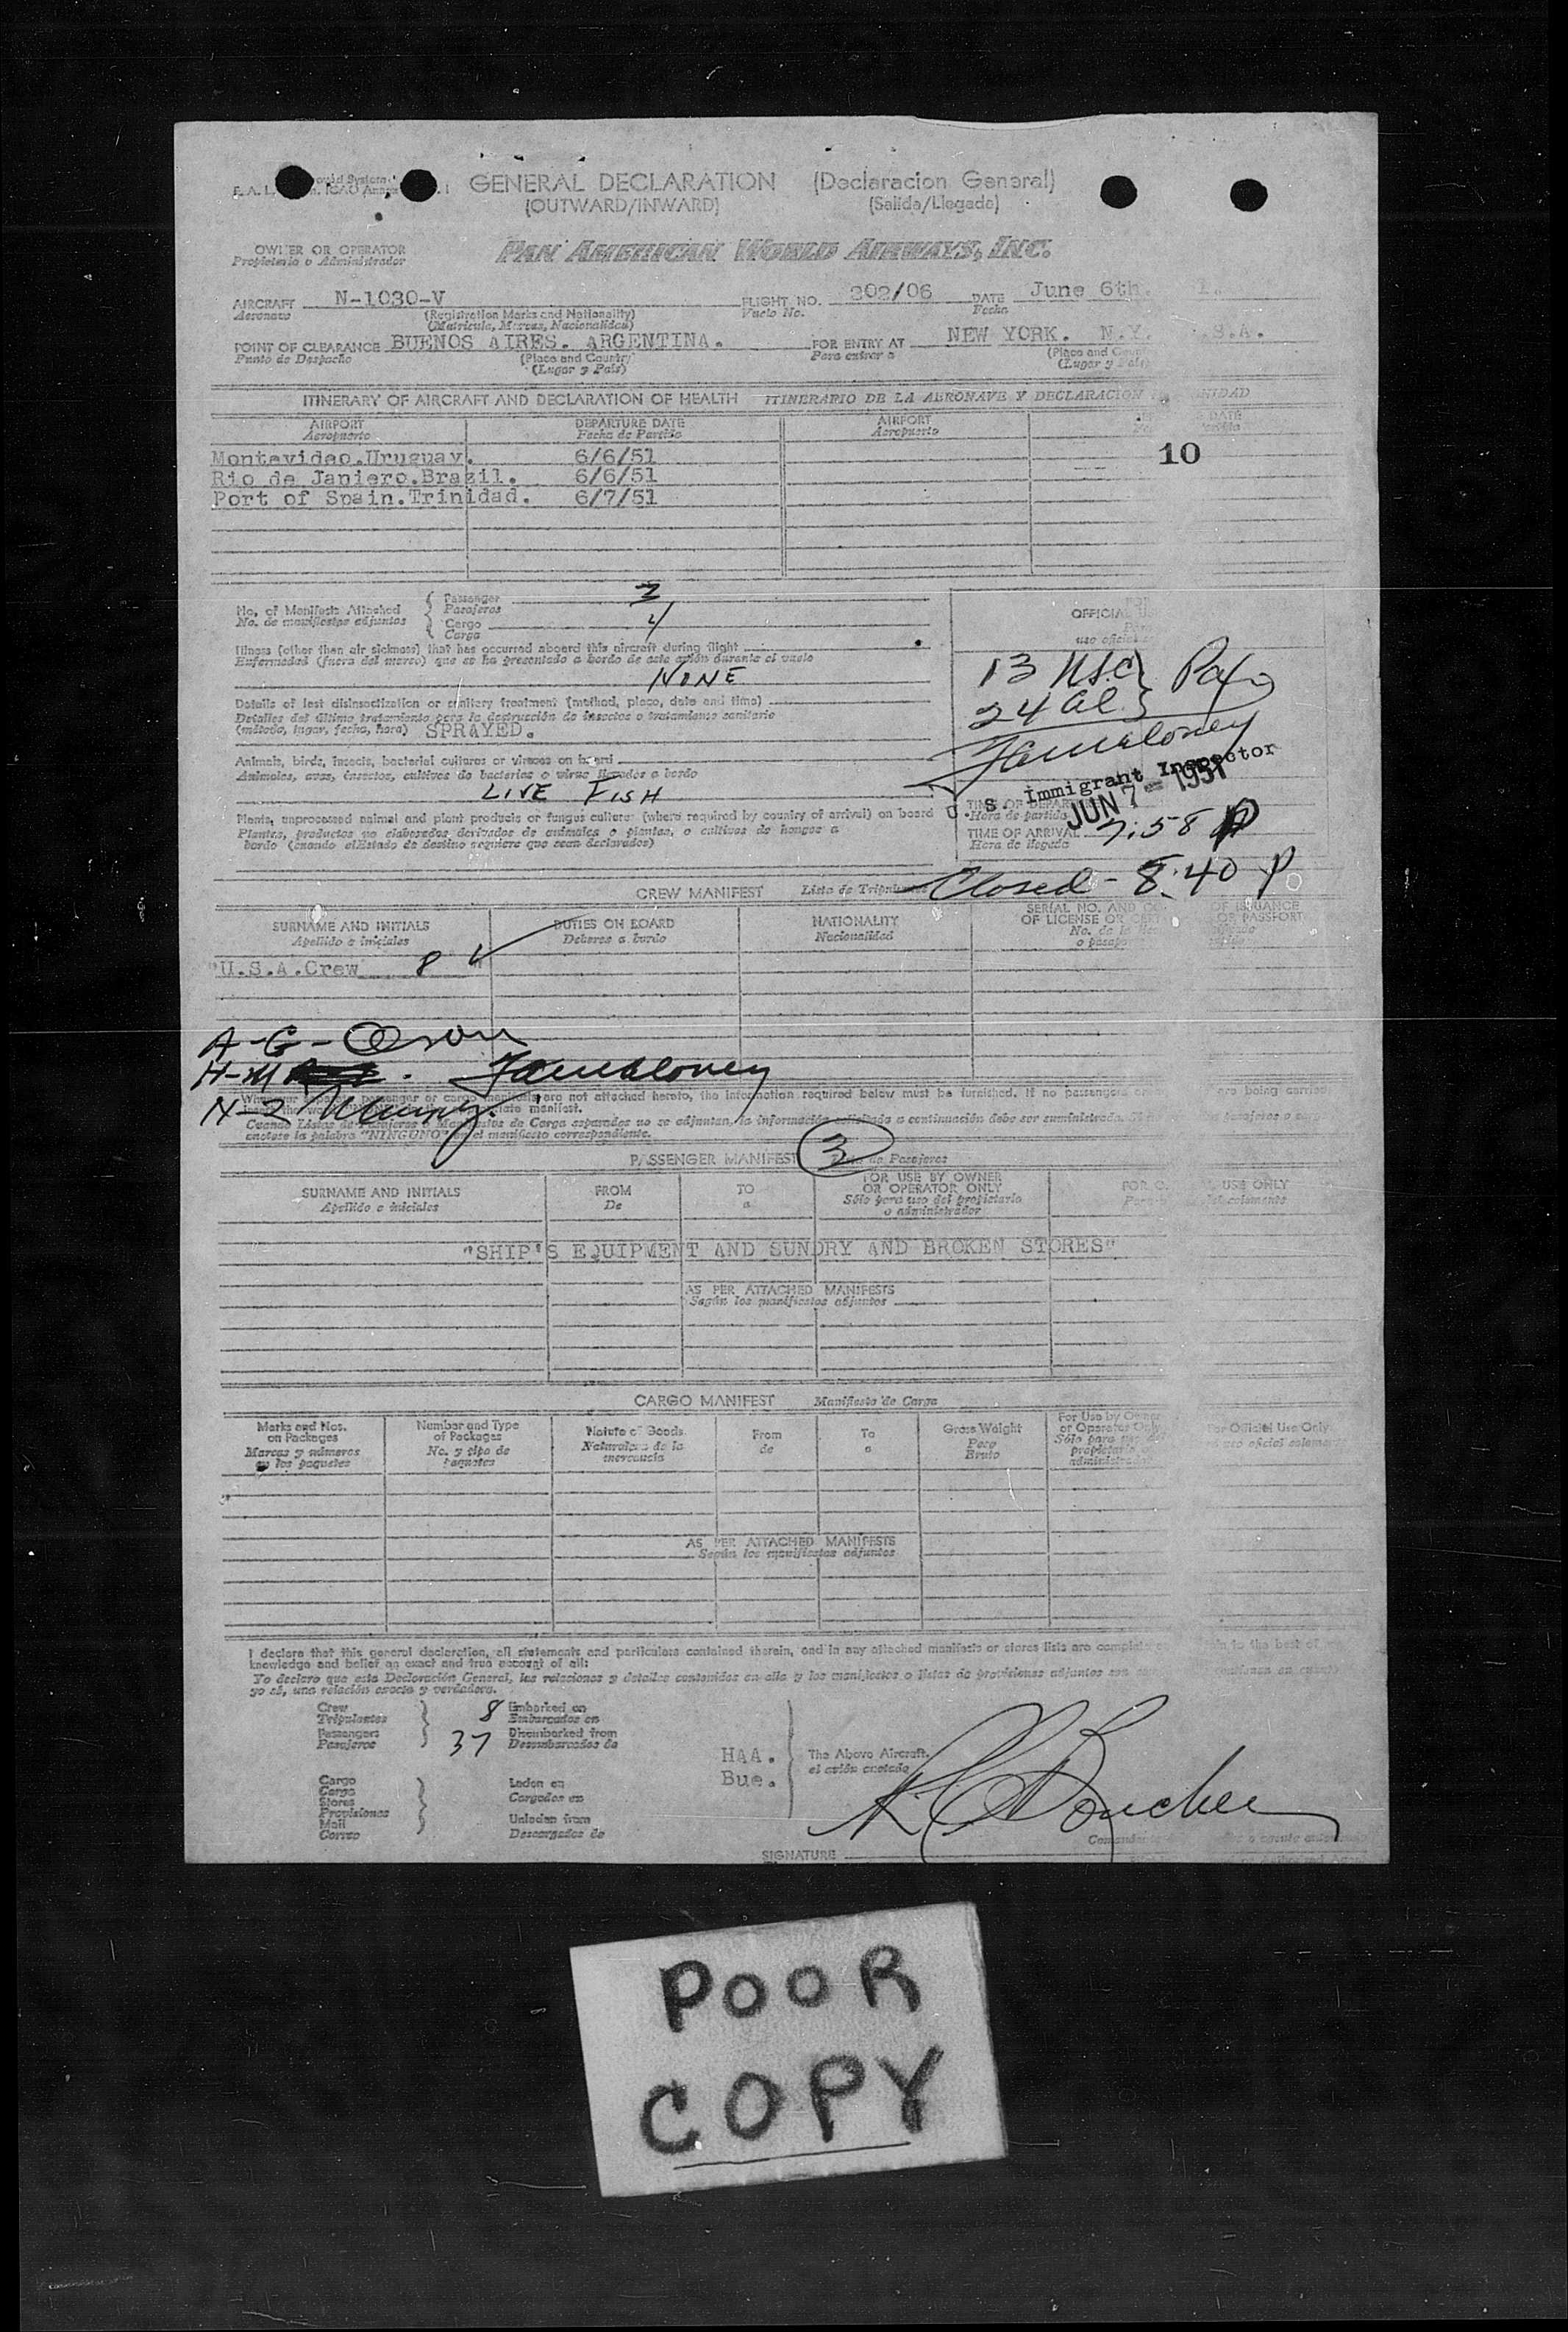 GENERAL DECLARATION (Declaracion General)
(OUTWARD/INWARD) (Salida/Llegada)
OWNER OR OPERATOR PAN AMERICAN WORLD AIRWAYS, INC.
Propietario o Administrador
AIRCRAFT N-1030-V FLIGHT NO. 202/06 DATE June 6th.
Aeronave (Registration Marks and Nationality) Vuelo No. Fecha
(Matricula, Marcas, Nacionalidad)
POINT OF CLEARANCE BUENOS AIRES. ARGENTINA. FOR ENTRY AT NEW YORK. N.Y. S.A.
Punto de Despacho (Place and Country) Para entrar a (Place and
(Lugar y Pais) (Lugar y Pais)
ITINERARY OF AIRCRAFT AND DECLARATION OF HEALTH ITINERARIO DE LA AERONAVE Y DECLARACION
AIRPORT DEPARTURE DATE AIRPORT DATE
Aeropuerto Fecha de Partida Aeropuerto
Montevideo.Uruguay. 6/6/51 10
Rio de Janiero.Brazil. 6/6/51
Port of Spain.Trinidad. 6/7/51
No. of Manifests Attached Passenger 3
No. de manifiestos adjuntos Pasajeros
Cargo 4
Carga
OFFICIAL
uso oficial
Illness (other than air sickness) that has occurred aboard this aircraft during flight
Enfermedad (fuera del mareo) que se ha presentado a bordo de este avión durante el vuelo
NONE
13 USC Pax
24 al.
Details of last disinsectization or sanitary treatment (method, place, date and time)
Detalles del último tratamiento para la destrucción de insectos o tratamiento sanitario
(método, lugar, fecha, hora) SPRAYED.
Famaloney
Animals, birds, insects, bacterial cultures or viruses on board
Animales, aves, insectos, cultivos de bacterias o virus llevados a bordo
LIVE FISH
U S Immigrant Inspector
JUN 7 - 1951
Plants, unprocessed animal and plant products or fungus culture (where required by country of arrival) on board
Plantas, productos no elaborados derivados de animales o plantas, o cultivos de hongos a
bordo (cuando el Estado de destino requiere que sean declarados)
TIME OF DEPARTURE
Hora de partida
TIME OF ARRIVAL 7:58 P
Hora de llegada
Closed - 8:40 P
CREW MANIFEST Lista de Tripulantes
SURNAME AND INITIALS DUTIES ON BOARD NATIONALITY SERIAL NO. AND OF ISSUANCE
Apellido e iniciales Deberes a bordo Nacionalidad OF LICENSE OR OR PASSPORT
No. de la
o pasap
"U.S.A.Crew 8 "
A-G- Olson
H-M Famaloney
N-2 Murray
Whenever passenger or cargo manifests are not attached hereto, the information required below must be furnished. If no passengers or being carried
manifest.
Cuando Listas de Pasajeros o Manifiestos de Carga separados no se adjuntan, la información solicitada a continuación debe ser suministrada.
anotese la palabra "NINGUNO" en el manifiesto correspondiente.
PASSENGER MANIFEST 3 de Pasajeros
SURNAME AND INITIALS FROM TO FOR USE BY OWNER OR OPERATOR ONLY USE ONLY
Apellido e iniciales De a Sólo para uso del propietario o administrador
"SHIP'S EQUIPMENT AND SUNDRY AND BROKEN STORES"
AS PER ATTACHED MANIFESTS
Según los manifiestos adjuntos
CARGO MANIFEST Manifiesto de Carga
Marks and Nos. on Packages Number and Type of Packages Nature of Goods From To Gross Weight For Use by Owner or Operator Only For Official Use Only
Marcas y números en los paquetes No. y tipo de paquetes Naturaleza de la mercancia de a Peso Bruto Sólo para uso del propietario o administrador
AS PER ATTACHED MANIFESTS
Según los manifiestos adjuntos
I declare that this general declaration, all statements and particulars contained therein, and in any attached manifests or stores lists are complete to the best of
knowledge and belief an exact and true account of all:
Yo declaro que esta Declaración General, las relaciones y detalles contenidos en ella y los manifiestos o listas de provisiones adjuntos son
yo sé, una relación exacta y verdadera.
Crew 8 Embarked on
Tripulantes Embarcados en
Passengers 37 Disembarked from
Pasajeros Desembarcados de
HAA. The Above Aircraft.
Bue. el avión anotado
Cargo Laden on
Carga Cargados en
Stores
Provisiones
Mail Unladen from
Correo Descargados de
R C Boucher
SIGNATURE
POOR
COPY